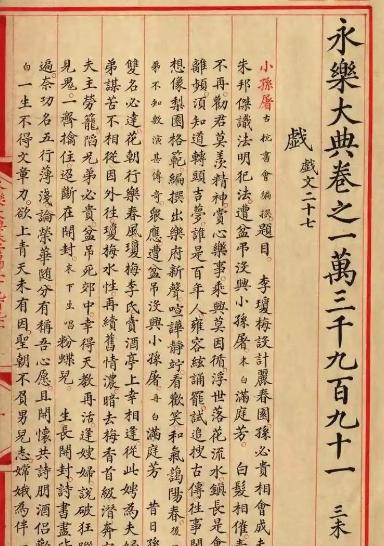 永樂大典卷之一萬三千九百九十一 三未
戲 戲文二十七
小孫屠 古杭書會編撰 題目。 李瓊梅設計麗春園 孫必貴相會成夫
朱邦傑識法明犯法 遭盆吊沒興小孫屠 末白 滿庭芳。 白髮相催青
不再。勸君莫羨精神。賞心樂事。乘興莫因循。浮世落花流水。鎖長是會
離頻。須知道轉頭吉夢。誰是百年人。雍容絃誦罷。試追搜古傳。往事閒
想像梨園格範。編撰出樂府新聲。喧譁靜。竚看歡笑。和氣藹陽春。後
弟不知敷演甚傳奇 眾應遭盆吊沒興小孫屠 再白 滿庭芳 昔日孫
雙名必達。花朝行樂春風。瓊梅李氏。賣酒亭上幸相逢。從此娉為夫婦
弟謀苦不相從。因外往瓊梅水性。再續舊情濃。 暗去梅香首級。潛奔
夫主勞籠。陷兄弟必貴盆吊死郊中。幸得天教再活。逢嫂婦說破狂蹤
見鬼。一齊擒住。迢斷在開封。末下 生唱 粉蝶兒。 生長開封。詩書盡
遍。奈功名五行薄淺。論榮華隨分有。稱吾心愿。且開懷共詩朋酒侶歡
白 一生不得文章力。欲上青天未有因。聖朝不負男兒志。嫦娥為伴